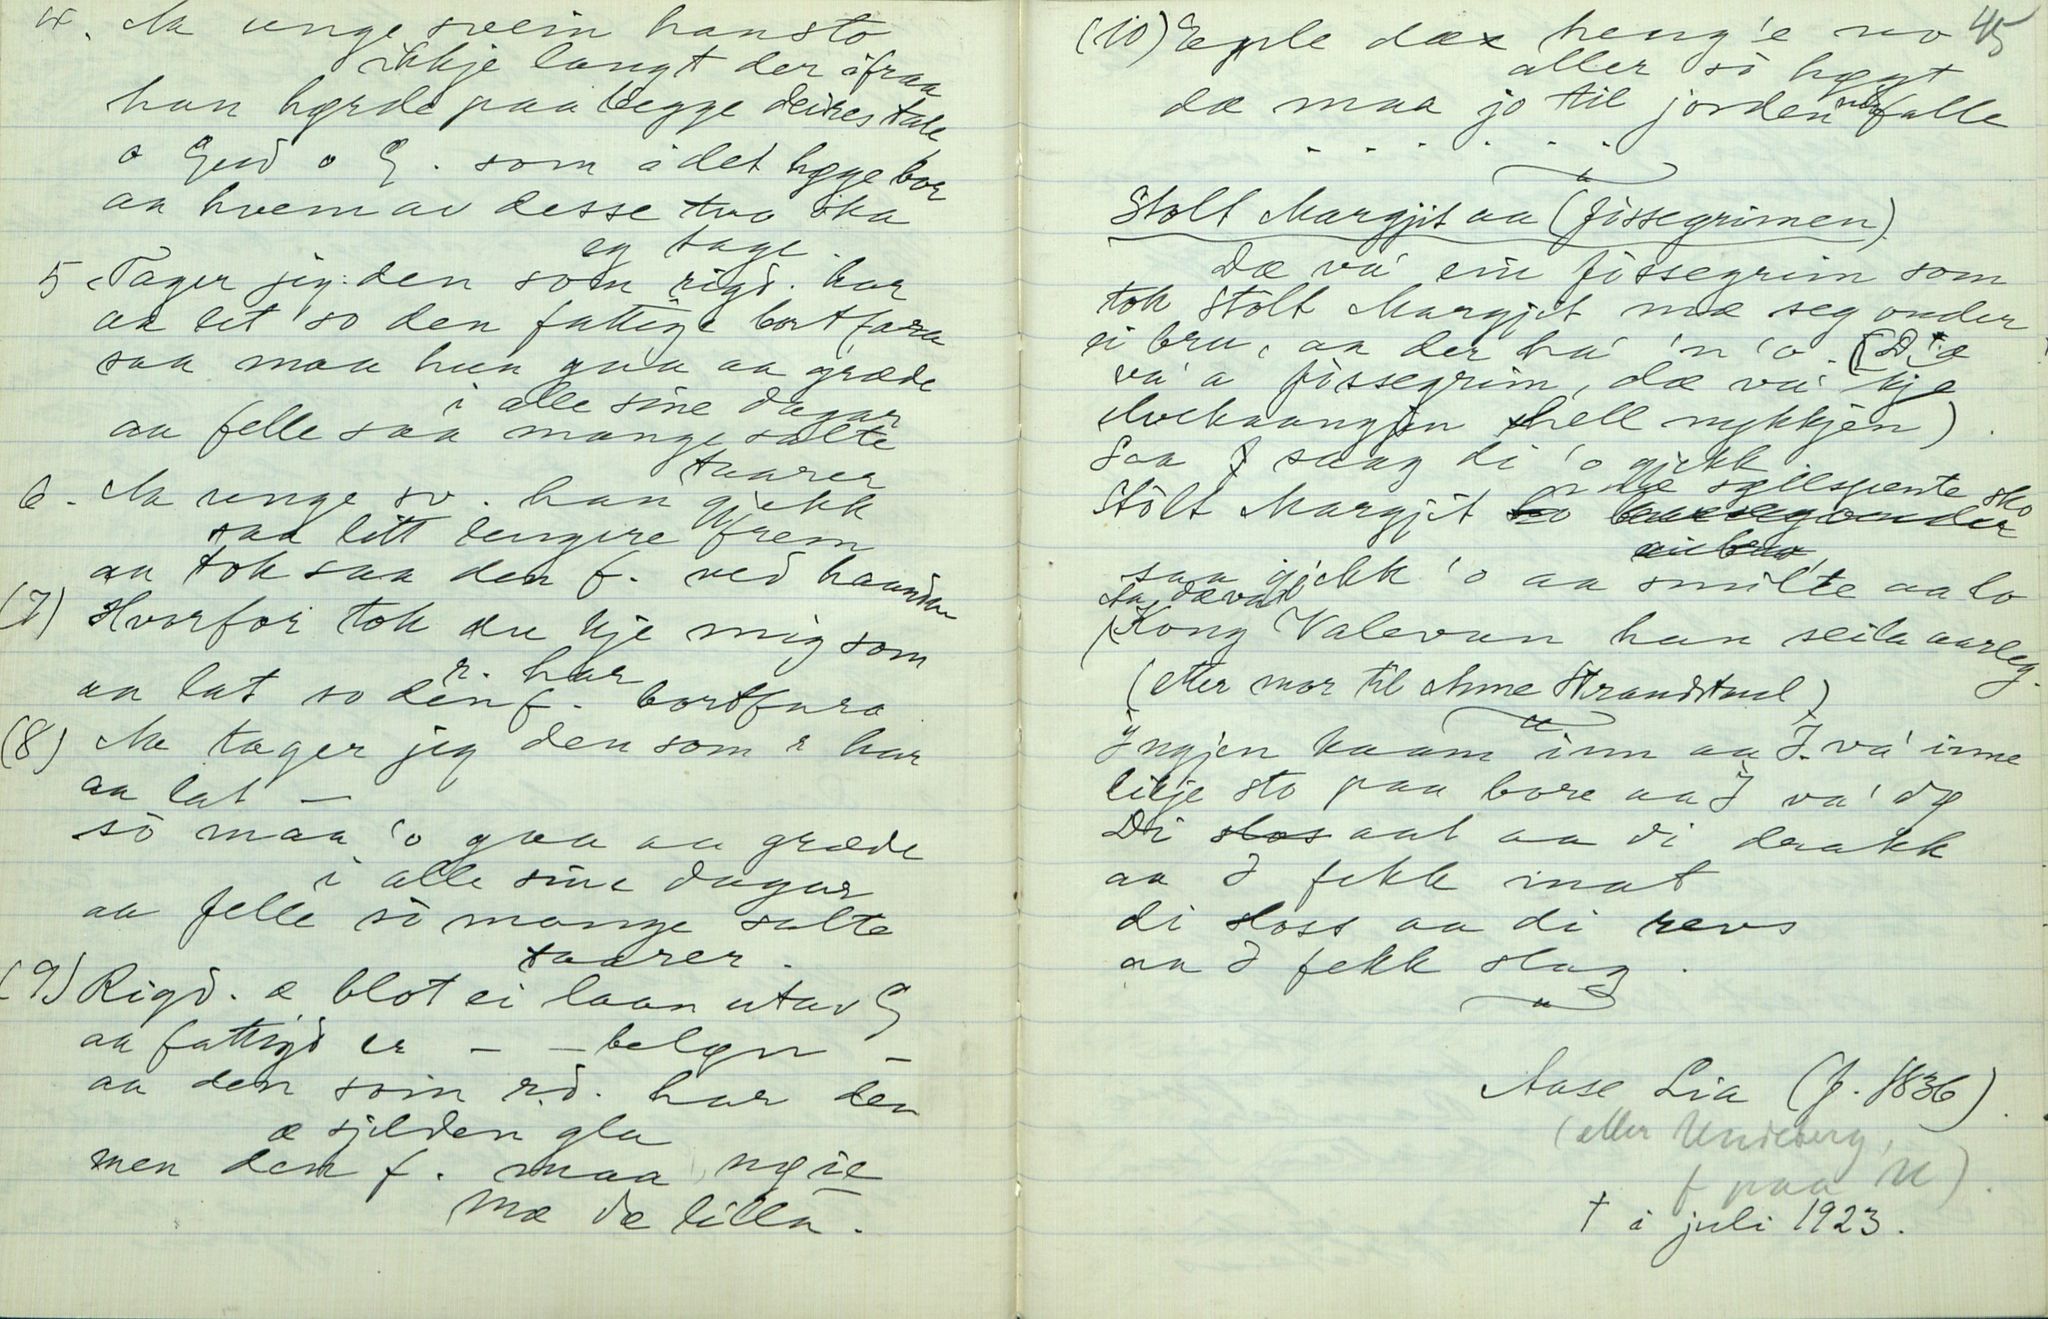 4. Aa unge svein han sto
ikkje langt der ifraa
han hørde paa begge deires tale
o Gud o G. som i det høge bor
aa hvem av desse tvo ska
eg tage
5. Tager jig den som rigd. har
aa let so den fattige bortfara
saa maa hun gaa aa græde
i alle sine dagar
aa felle saa mange salte
taarer
6. Aa unge sv. han gjekk
saa litt lengere frem
aa tok saa den f. ved haanden
(7) Hvorfor tok du kje mig som
r. har
aa lat so den f. bortfara
(8) Aa tager jeg den som r har
aa lat —
so maa 'o gaa aa græde
i alle sine dagar
aa felle so mange salte
taarer.
(9) Rigd. æ blot ei laan utav G
aa fattigd er — — beløn —
aa den som r.d. har den
æ sjelden gla
men den f. maa nøie
mæ de litla.
45
(10) Eple dæ heng'e no
aller so høgt
dæ maa jo til jorden nedfalle
- - - - - -
Stolt Margjit aa (fossegrimen)
Dæ va' ein fossegrim som
tok Stolt Margjit mæ seg onder
ei bru, aa der ha' 'n 'o. (Dæ
va' a fossegrim, dæ va' kje
elvekaangjen hell nykkjen).
Saa saag di 'o gjekk
i dæ sylspente sko
Stolt Margjit so
saa gjekk 'o aa smilte aa lo
Aa dæ va
(Kong Valevan han seila aarleg.
(etter mor til Anne Strandstad)
Ingjen kaam inn aa I. va' inne
likje sto paa bore aa I va' dø
Di sloss aat aa di drakk
aa I fekk mat
di sloss aa di revs
aa I fekk slag.
Aase Lia (f. 1836).
(eller Undeberg,
f paa U).
† i juli 1923.